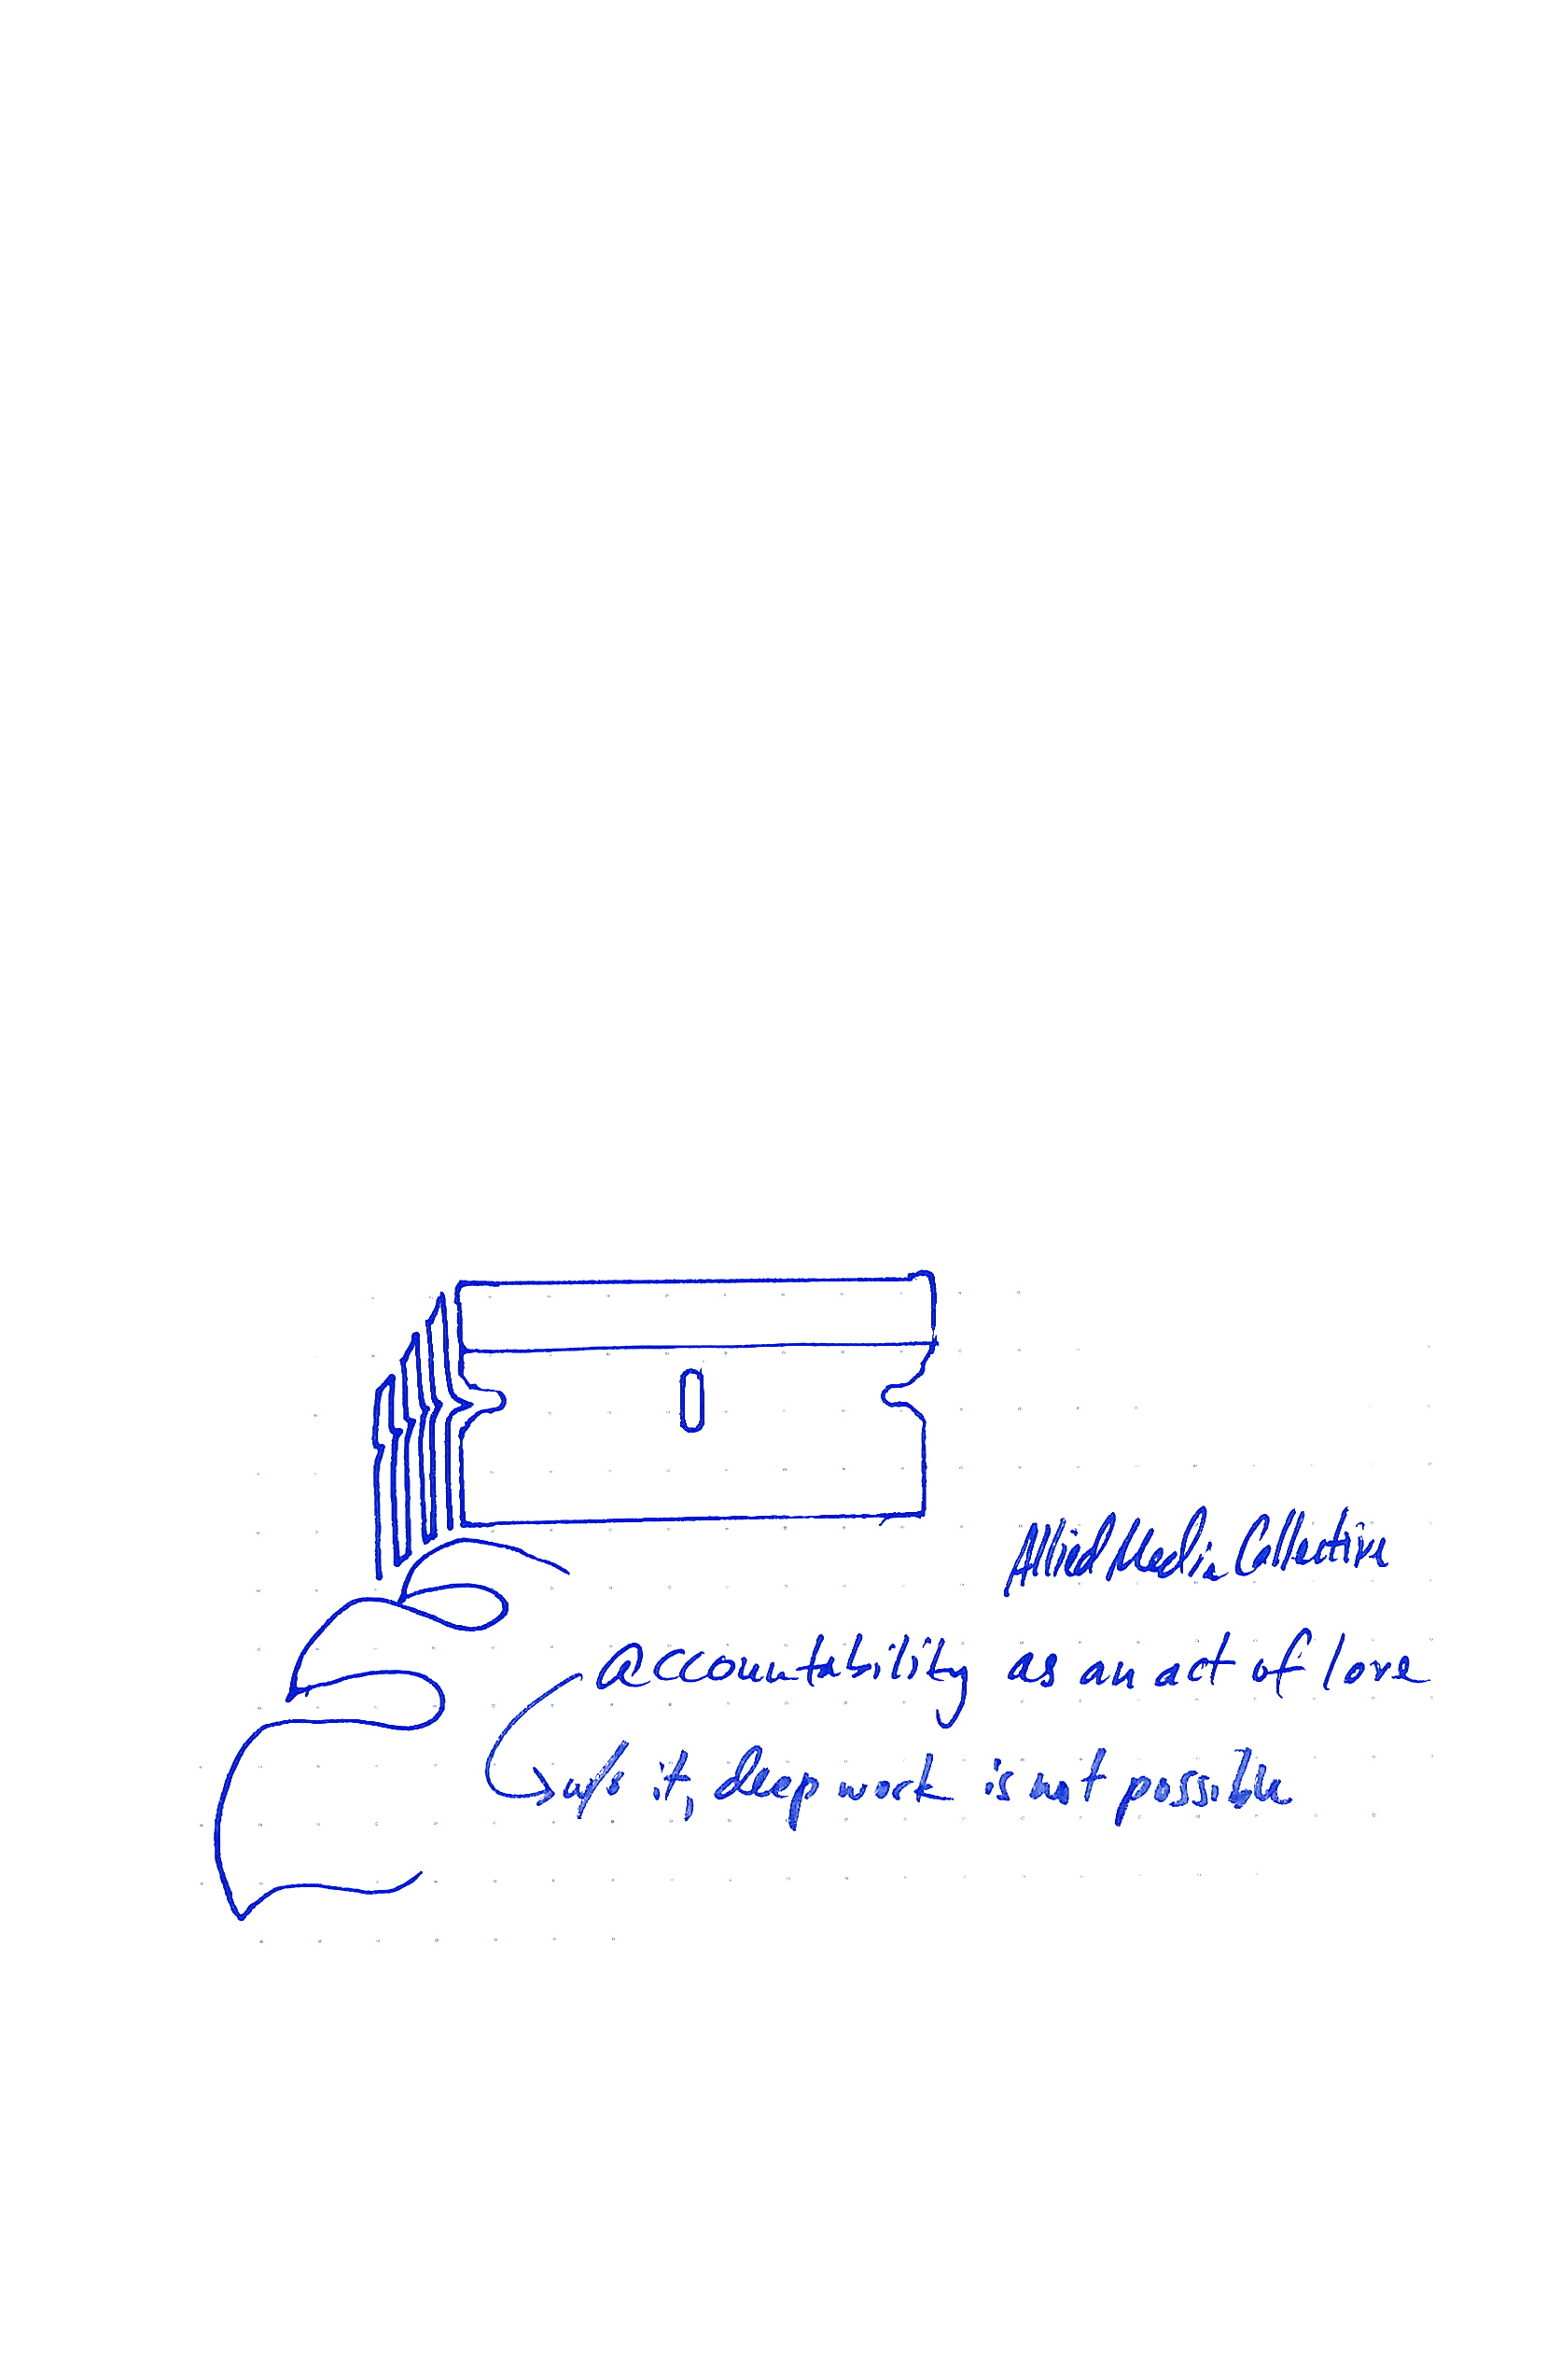 Allied Media Collective
accountability as an act of love
w/o it, deep work is not possible